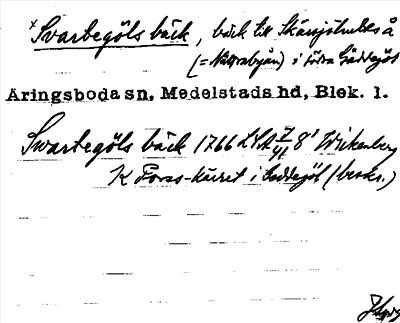 x Svartegöls bäck, bäck till Skärsjöhults å
(= Nättrabyån) i Södra Gäddegöl
Aringsboda sn, Medelstads hd, Blek. l.
Swartegöls bäck 1766 LSA 8' Wickenberg
K Forss-kärret i Geddegöl (beskr.)